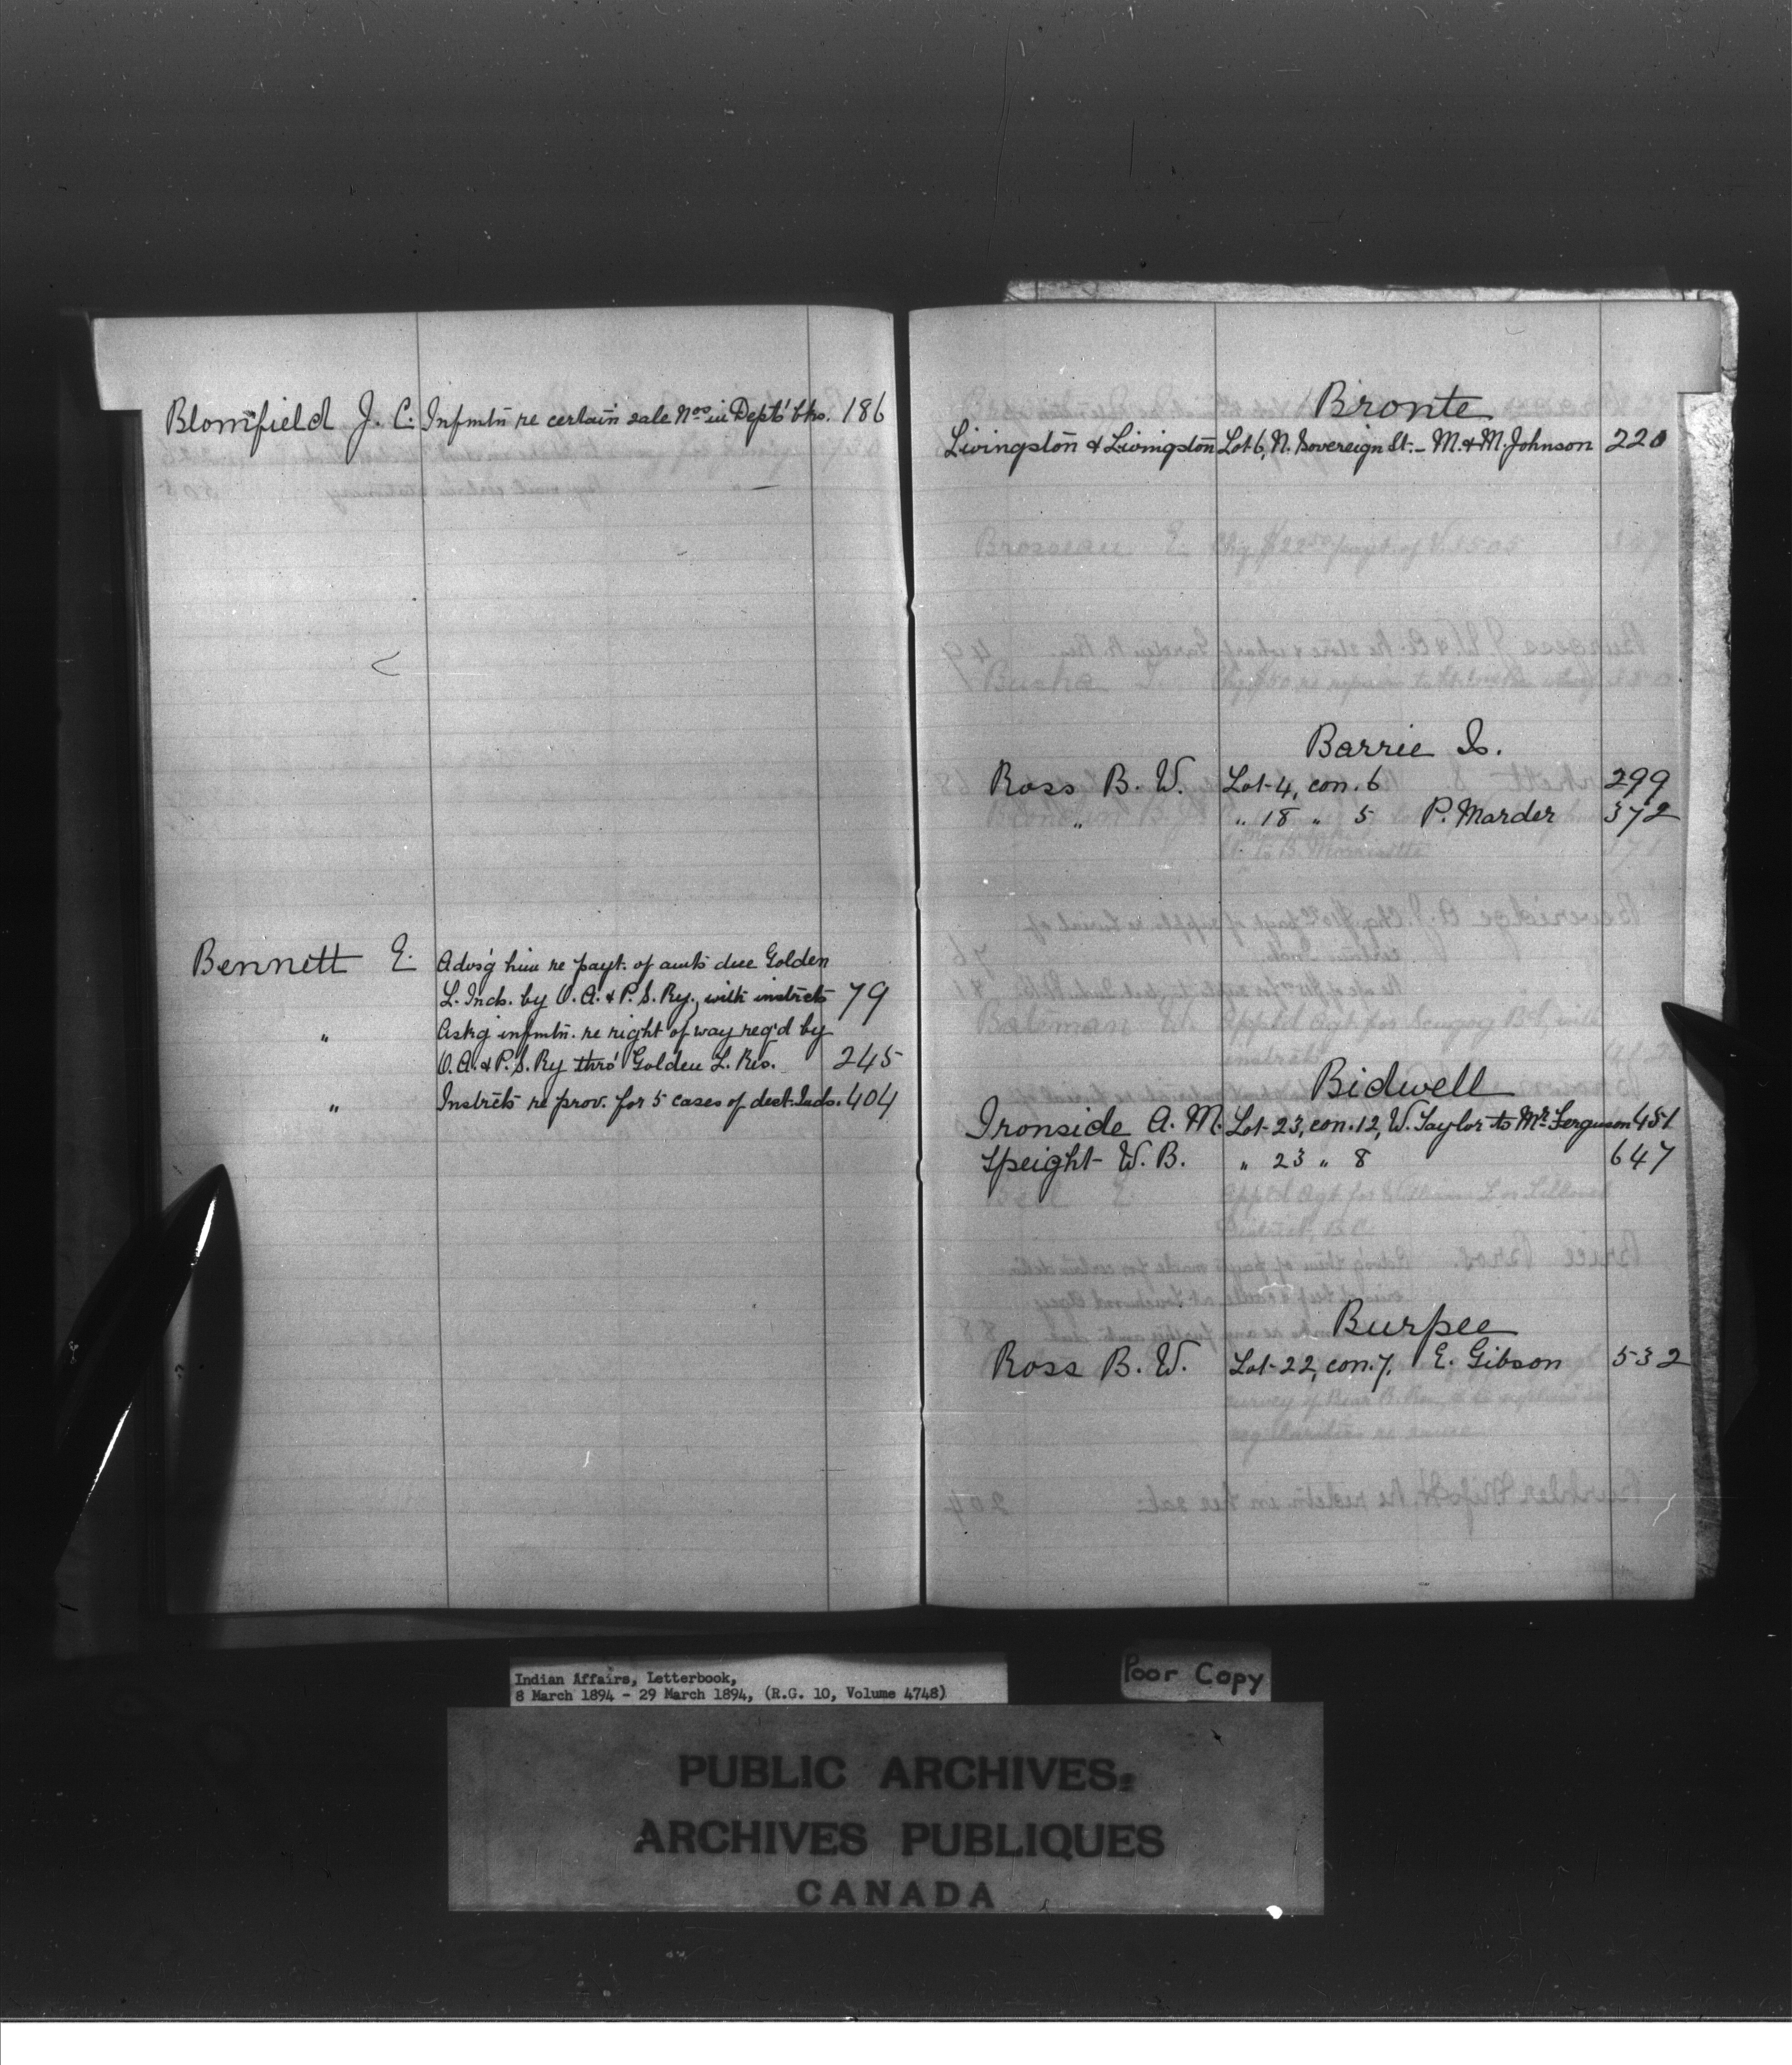 Blomfield J. C. Infmtn re certain sale Nos in Dept' bks. 186
Bennett E. Advs'g him re payt. of amts due Golden
L. Inds. by O. A. & P. S. Ry., with instrcts 79
" Askg infmtn. re right of way req'd by
O. A. & P. S. Ry thro' Golden L. Res. 245
" Instrcts re prov. for 5 cases of dest. Inds. 404
Bronte
Livingston & Livingston Lot 6, N. Sovereign St. - M. & M. Johnson 220
Brosseau E. Chq $22.50 payt. of V. 1505
Barrie Is.
Ross B. W. Lot 4, con. 6 299
" " 18 " 5 P. Marder 372
Bateman W. App'td Agt for Scugog
Bidwell
Ironside A. M. Lot 23, con. 12, W. Taylor to Mr. Ferguson 451
Speight W. B. " 23 " 8 647
Burpee
Ross B. W. Lot 22, con. 7. E. Gibson 532
Indian Affairs, Letterbook,
8 March 1894 - 29 March 1894, (R.G. 10, Volume 4748)
Poor Copy
PUBLIC ARCHIVES
ARCHIVES PUBLIQUES
CANADA